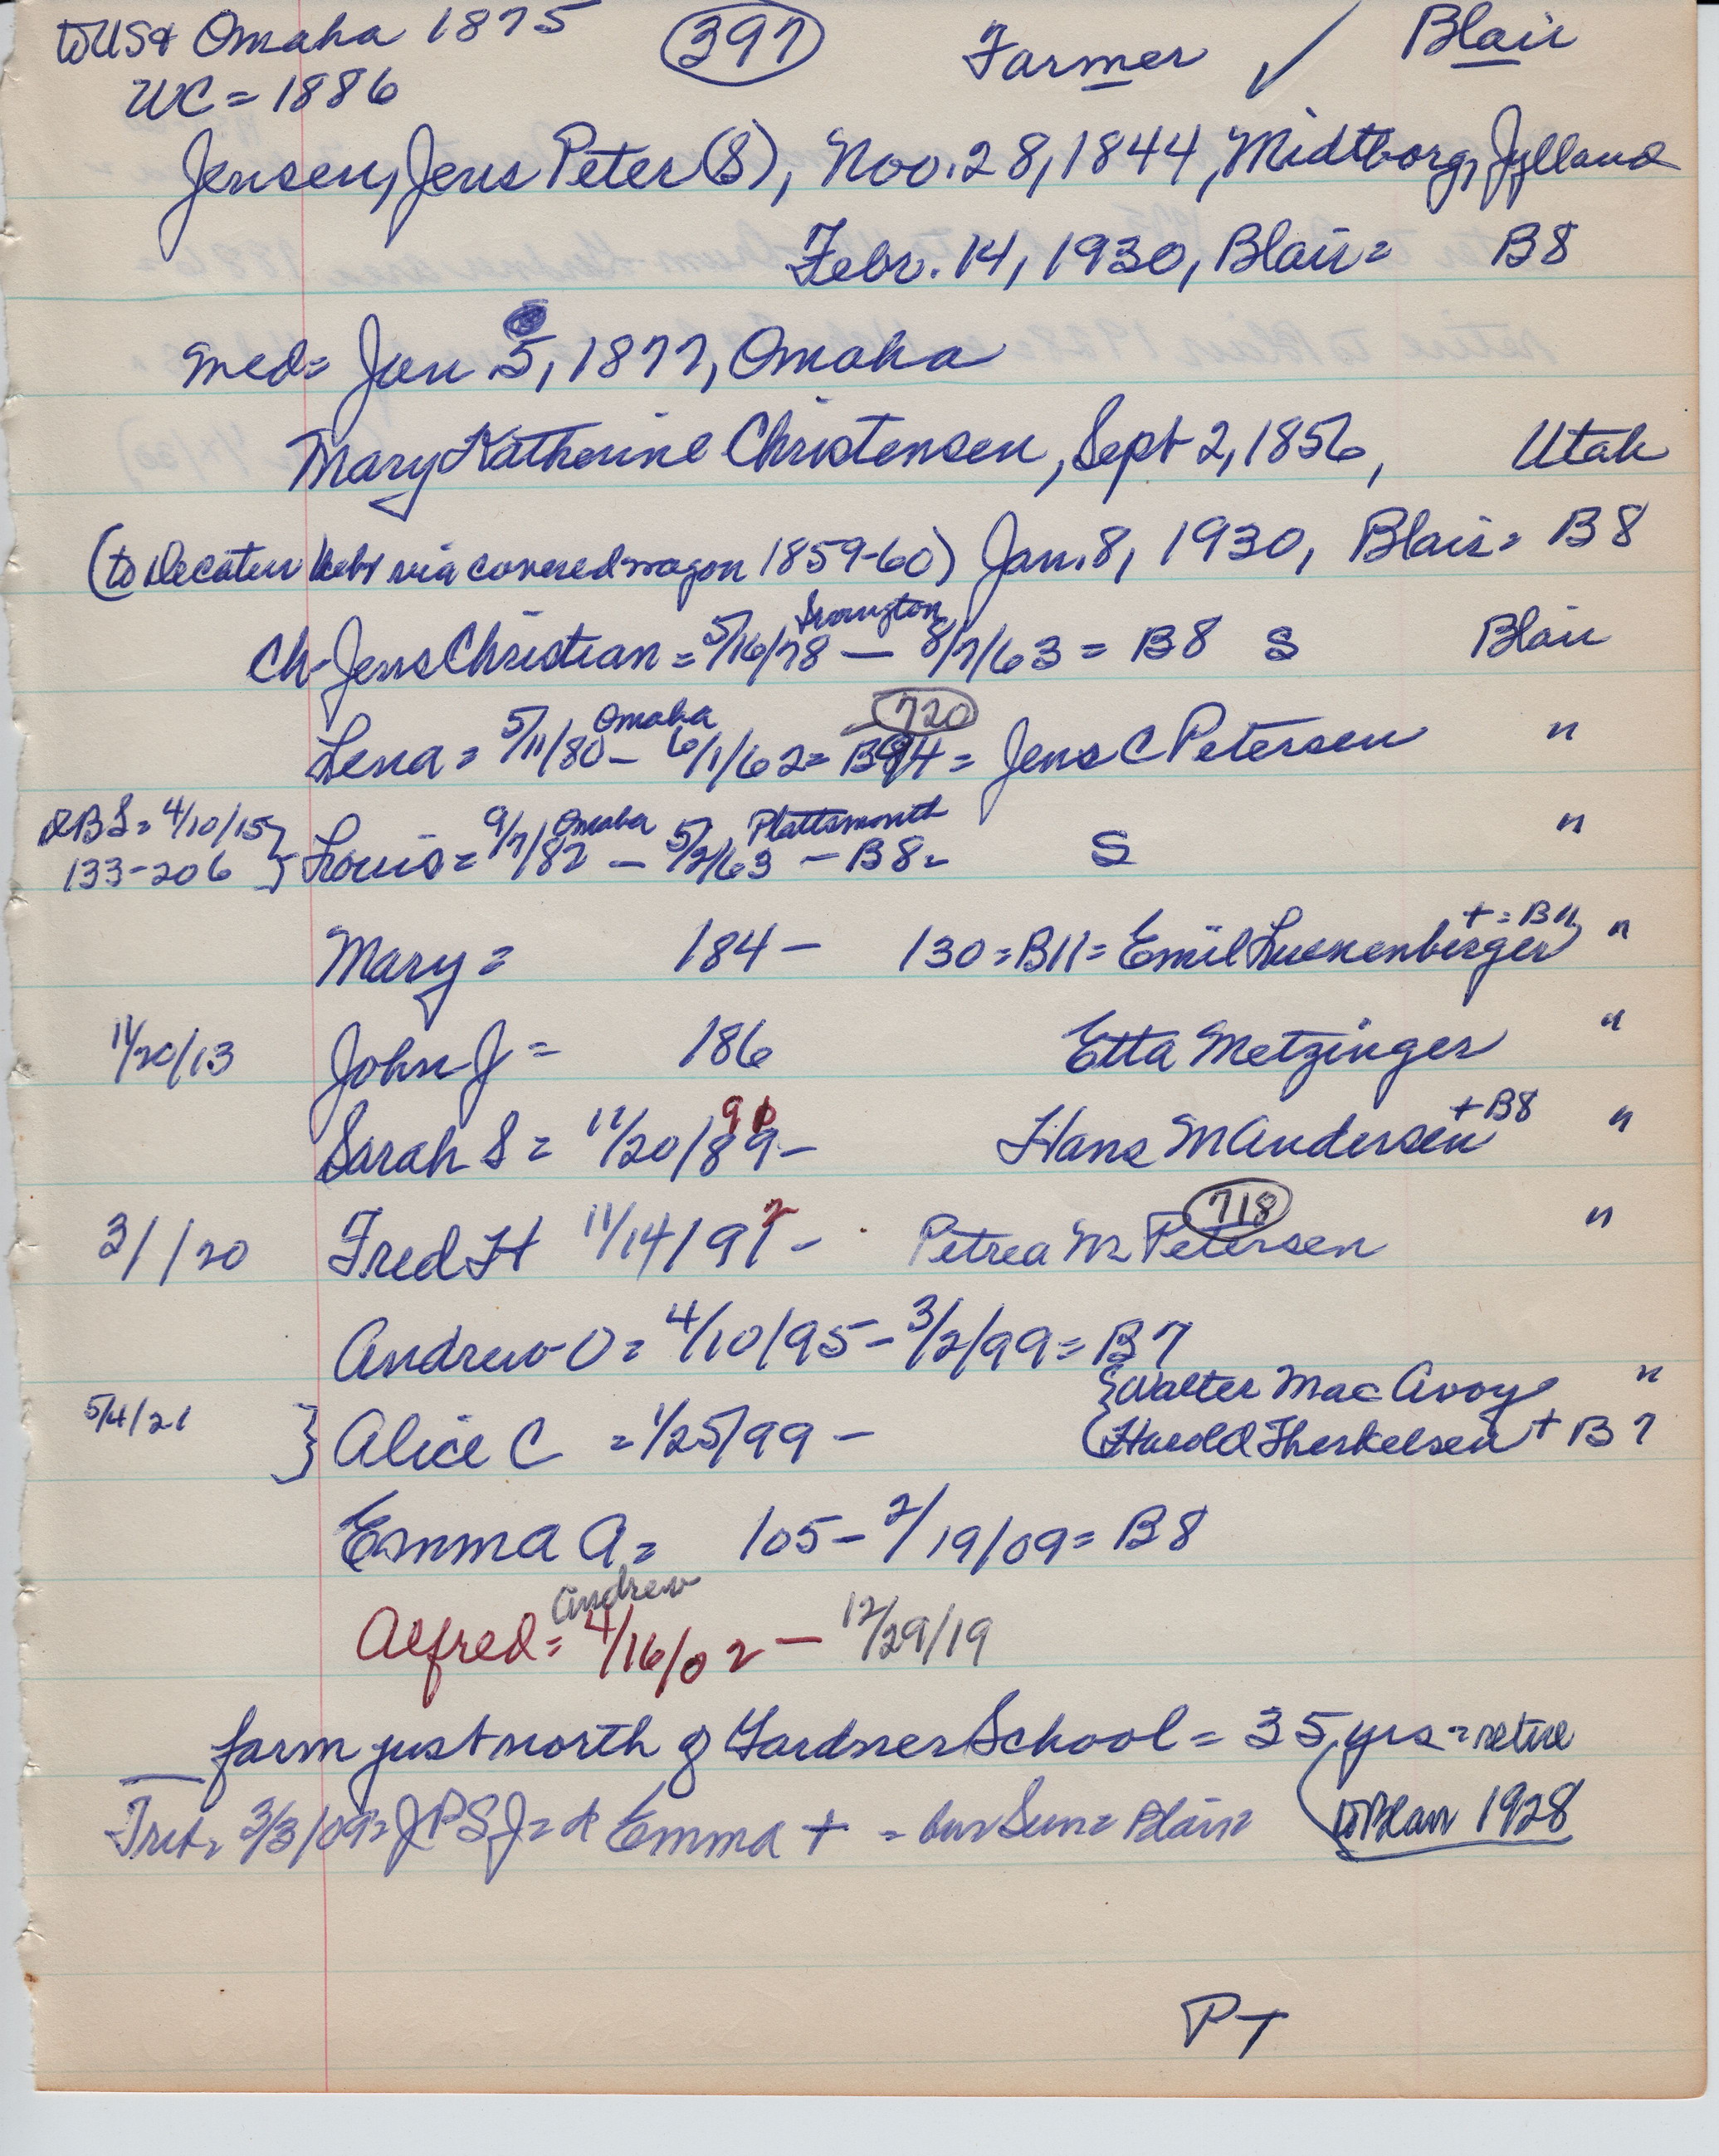 to US & Omaha 1875 (397) Farmer ✓ Blair
WC = 1886
Jensen, Jens Peter (S), Nov. 28, 1844, Midtborg, Jylland
Febr. 14, 1930, Blair = B8
med = Jan 5, 1877, Omaha
Mary Katherine Christensen, Sept 2, 1856, Utah
(to Decatur Nebr via covered wagon 1859-60) Jan. 8, 1930, Blair = B8
Irvington
Ch - Jens Christian = 5/16/78 — 8/7/63 = B8 S Blair
Omaha (720)
Lena = 5/11/80 - 6/1/62 = B94 = Jens C Petersen "
DBS = 4/10/15 Omaha Plattsmouth
133-206 } Louis = 9/7/82 — 5/2/63 — B8 = S "
+ = B11
Mary = 184 — 130 = B11 = Emil Luenenberger "
11/20/13 John J = 186 Etta Metzinger "
91 + B8
Sarah S = 11/20/89 — Hans M Andersen "
2 (718)
3/ /20 Fred H 11/14/91 - Petrea M Petersen "
Andrew O = 4/10/95 — 3/2/99 = B7
{ Walter Mac Avoy "
5/4/21 } Alice C = 1/25/99 — ( Harold Therkelsen + B7
Emma A = 105 — 2/19/09 = B8
Andrew
Alfred = 4/16/02 — 12/29/19
farm just north of Gardner School = 35 yrs = retire
3/3/09 = JPSJ = & Emma + = Blair = to Blair 1928
PT